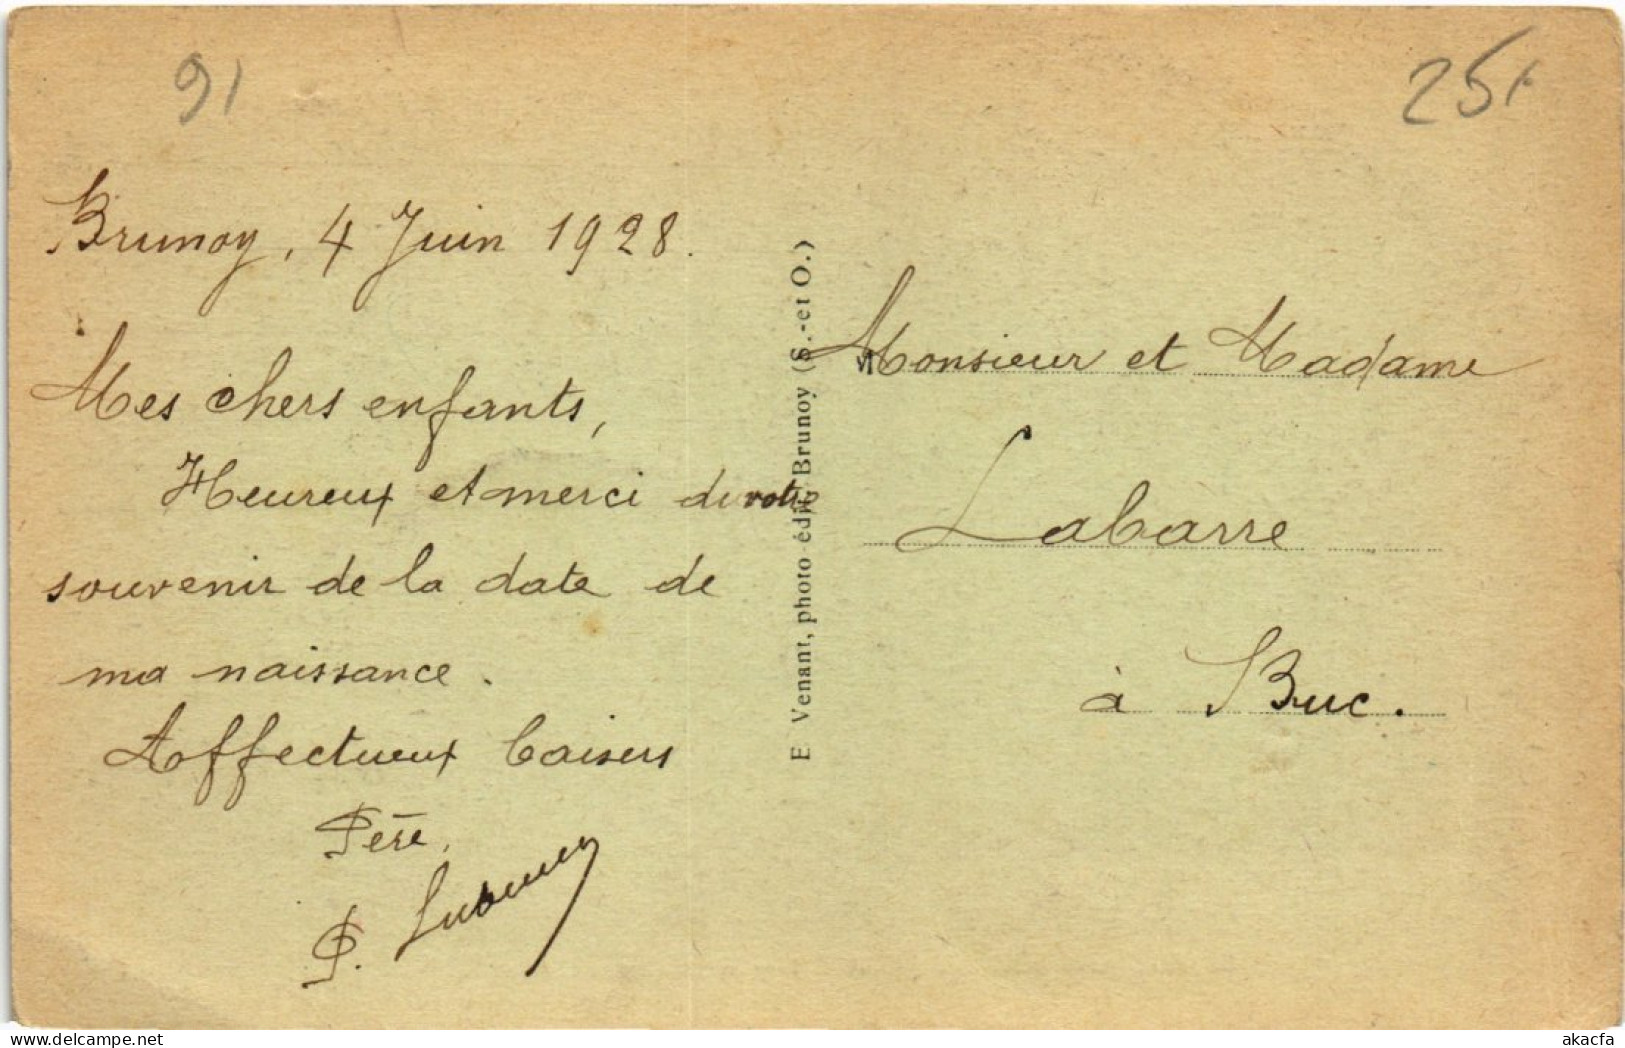 91
25f
Brunoy, 4 Juin 1928.
Mes chers enfants,
Heureux et merci de votre
souvenir de la date de
ma naissance.
Affectueux baisers
Père,
P.
E Venant, photo-édit. Brunoy (S.-et O.)
Monsieur et Madame
Labarre
à Buc.
akacfa
delcampe.net